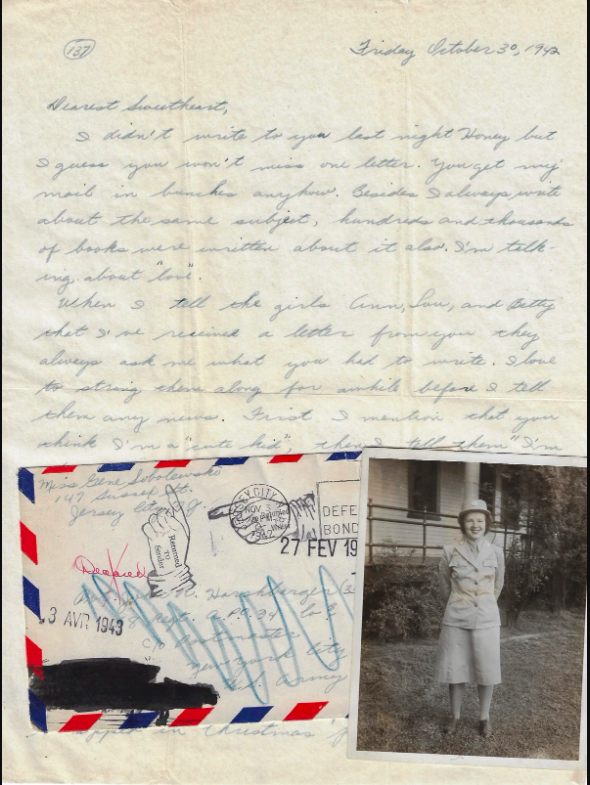 137
Friday October 30, 1942
Dearest Sweetheart,
I didn't write to you last night Honey but
I guess you won't miss one letter. You get my
mail in bunches anyhow. Besides I always write
about the same subject, hundreds and thousands
of books were written about it also. I'm talk-
ing about "love".
When I tell the girls Ann, Lou, and Betty
that I've received a letter from you they
always ask me what you had to write. I love
to string them along for awhile before I tell
them any news. Frist. I mention that you
think I'm a "cute kid", then I tell them "I'm
Miss Gene
147 Sussex St.
Jersey City, N.J.
JERSEY CITY
NOV 3
1942
DEFE
BOND
27 FEV 19
Returned
TO
Sender
3 AVR 1943
A.P.O. 34
c/o Postmaster
New York City
Army
in Christmas